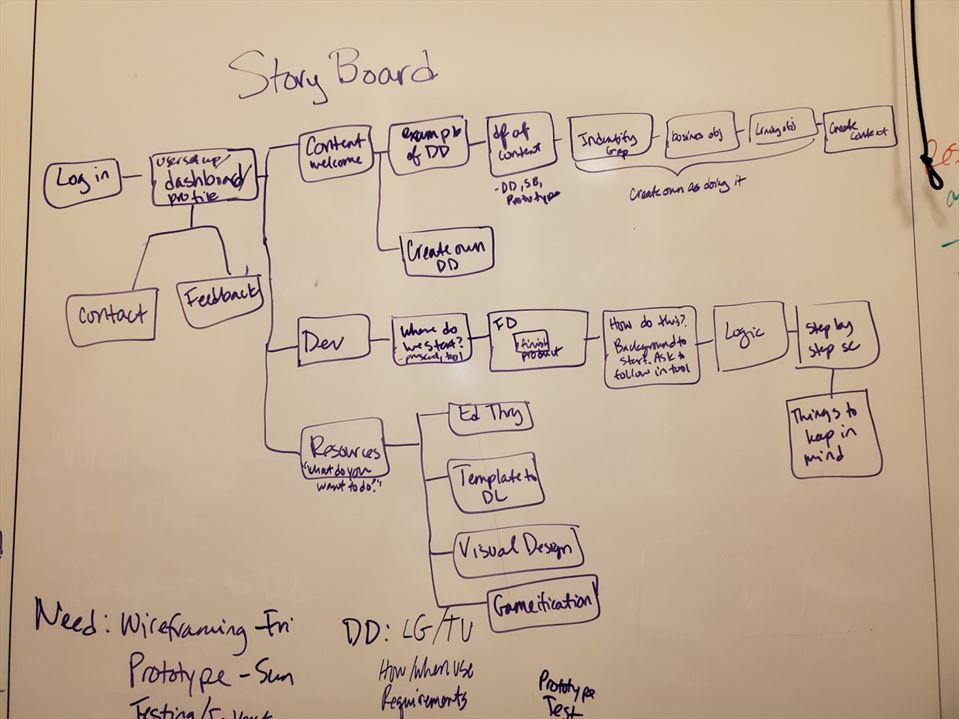 Story Board
Log in
User set up/
dashboard/
profile
Contact
Feedback
Content
welcome
example
of DD
df of
content
-DD, SB,
Prototype
Indentify
Gap
busines obj
Create
Content
Create own as doing it
Create own
DD
Dev
Where do
we start?
tool
finish
product
How do this?
Background to
start. Ask to
follow in tool
Logic
step by
step sc
Things to
keep in
mind
Resources
"what do you
want to do?"
Ed Thry
Template to
DL
Visual Design
Gameification
Need: Wireframing - Fri
Prototype - Sun
Testing/
DD: LG/TU
How/when use
Requirements
Prototype
Test